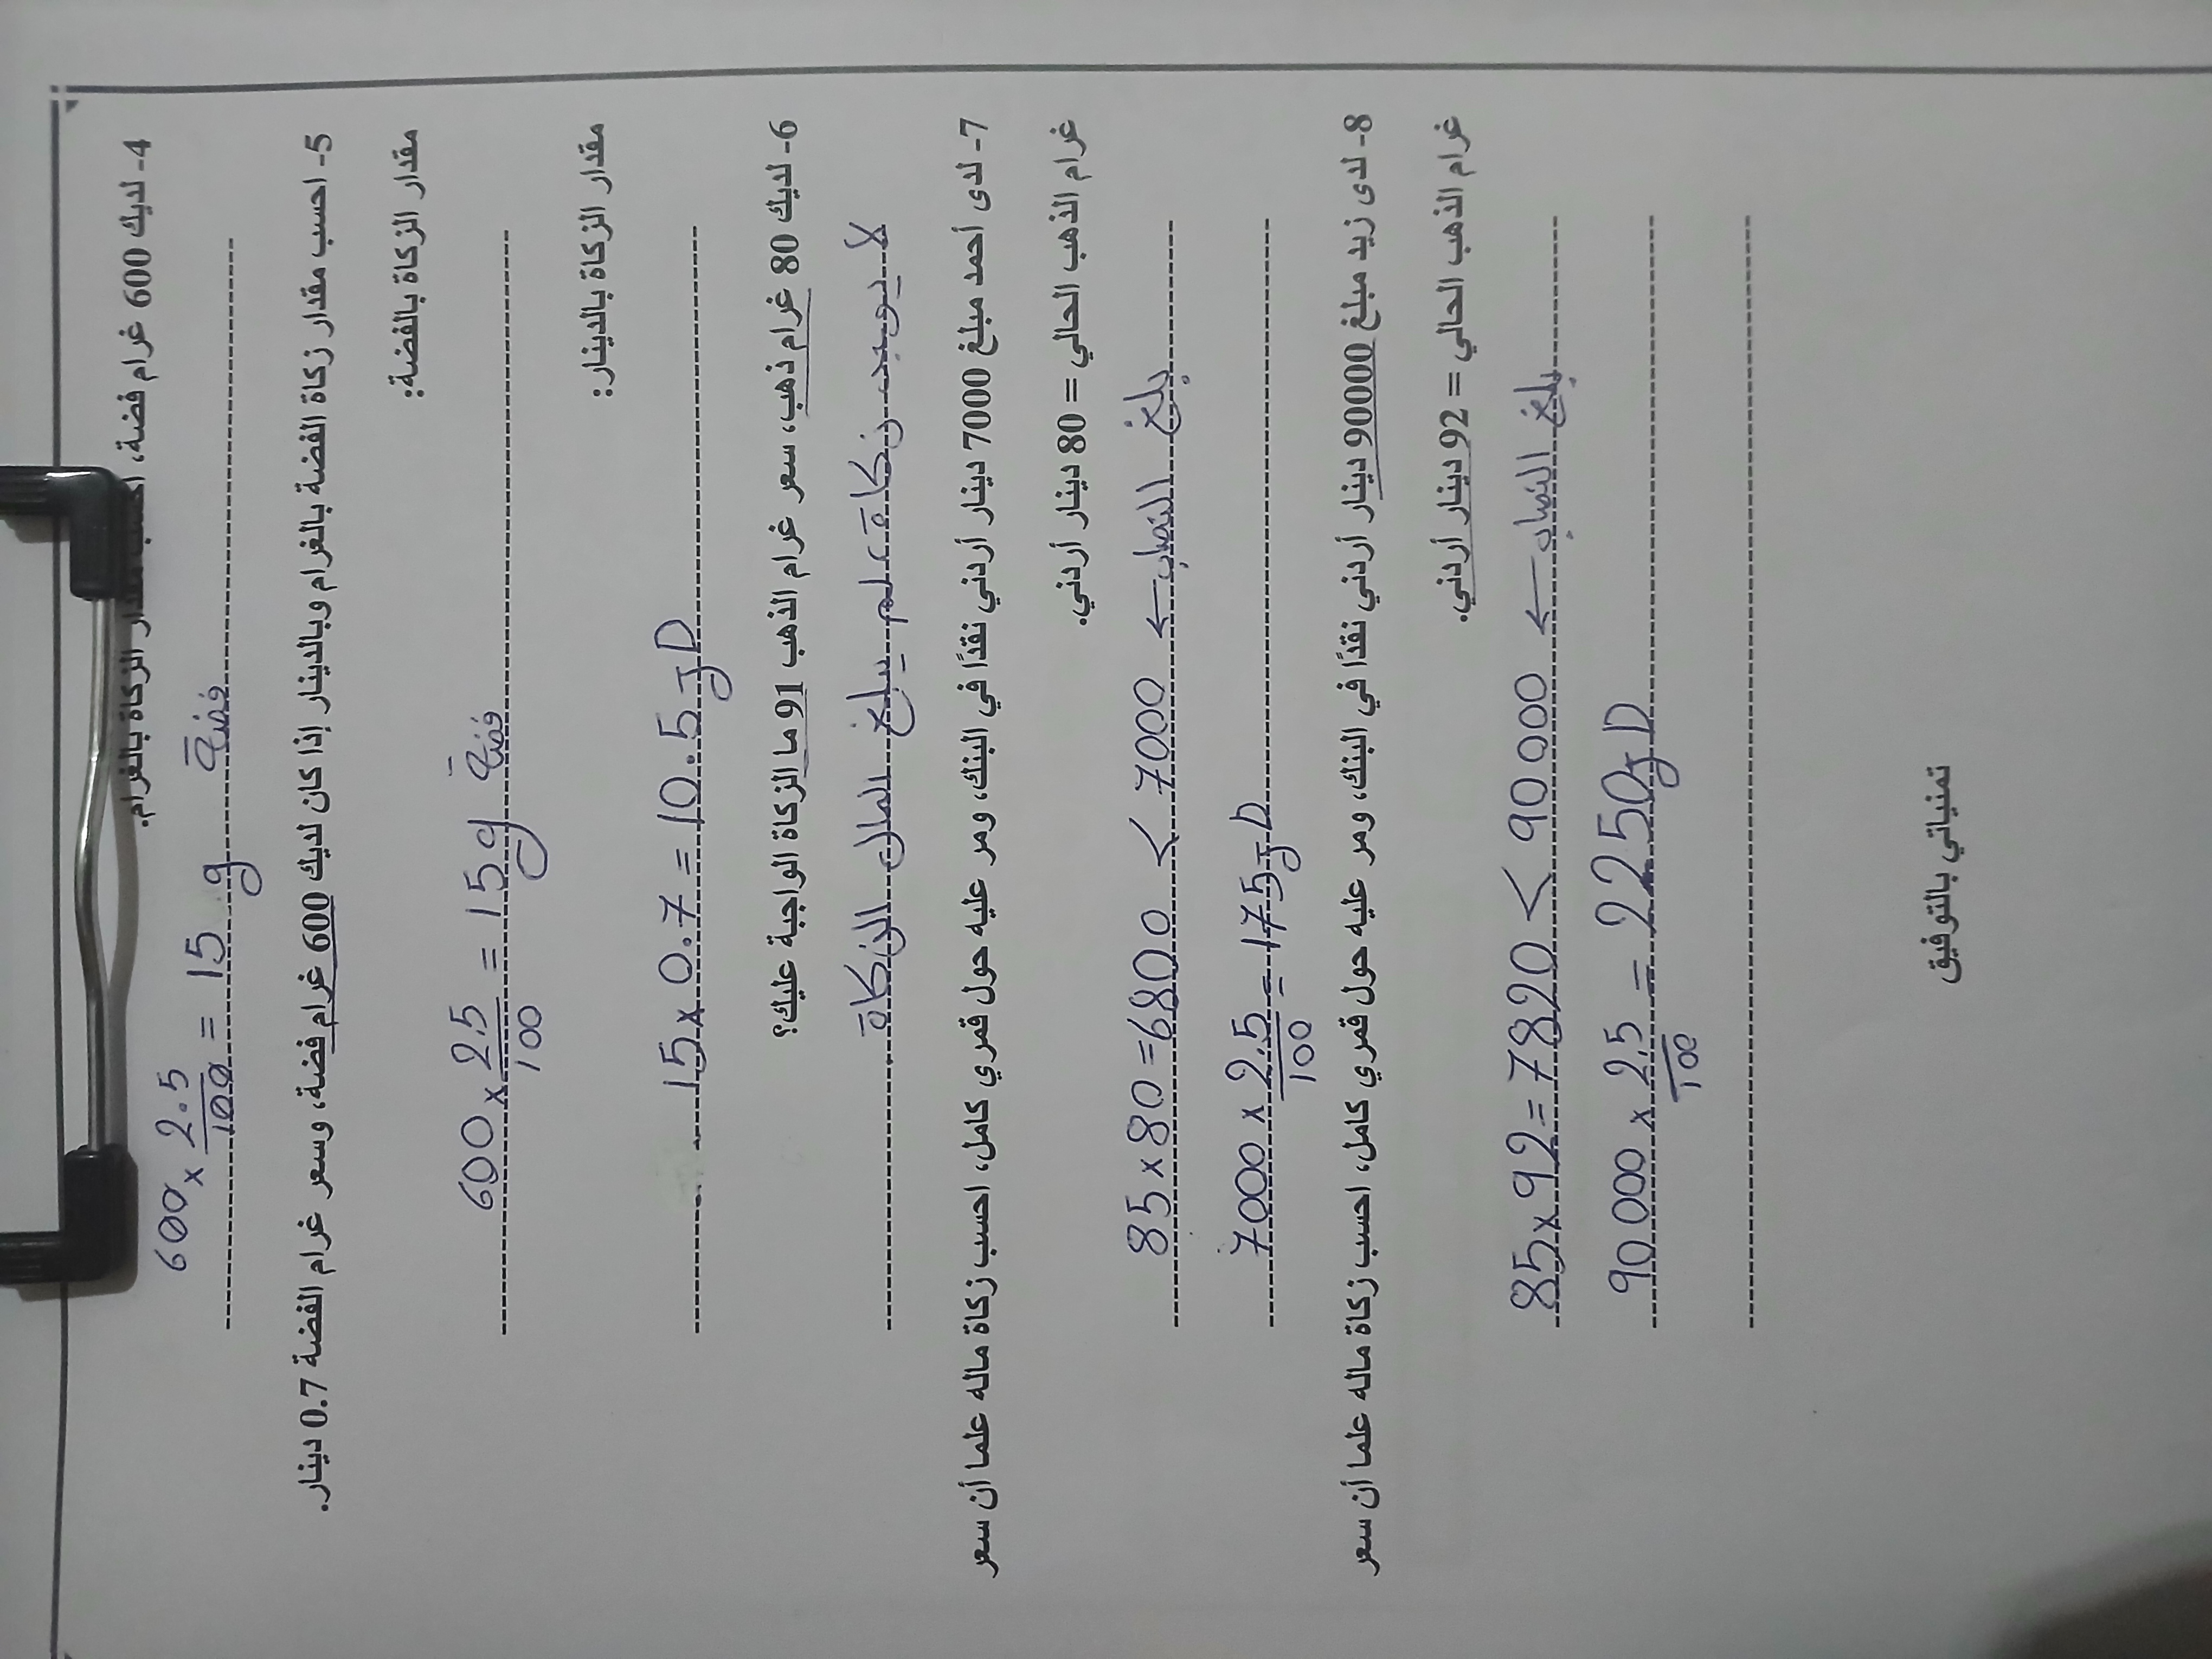 4- لديك 600 غرام فضة، احسب مقدار الزكاة بالغرام.
600 × 2.5/100 = 15 g فضة
5- احسب مقدار زكاة الفضة بالغرام وبالدينار إذا كان لديك 600 غرام فضة، وسعر غرام الفضة 0.7 دينار.
مقدار الزكاة بالفضة:
600 × 2.5/100 = 15 g فضة
مقدار الزكاة بالدينار:
15 × 0.7 = 10.5 JD
6- لديك 80 غرام ذهب، سعر غرام الذهب 91 ما الزكاة الواجبة عليك؟
لا يوجد زكاة، لم يبلغ المال الزكاة
7- لدى أحمد مبلغ 7000 دينار أردني نقدًا في البنك، ومر عليه حول قمري كامل، احسب زكاة ماله علما أن سعر
غرام الذهب الحالي = 80 دينار أردني.
85 × 80 = 6800 < 7000 ← بلغ النصاب
7000 × 2.5/100 = 175 JD
8- لدى زيد مبلغ 90000 دينار أردني نقدًا في البنك، ومر عليه حول قمري كامل، احسب زكاة ماله علما أن سعر
غرام الذهب الحالي = 92 دينار أردني.
85 × 92 = 7820 < 90000 ← بلغ النصاب
90000 × 2.5/100 = 2250 JD
تمنياتي بالتوفيق